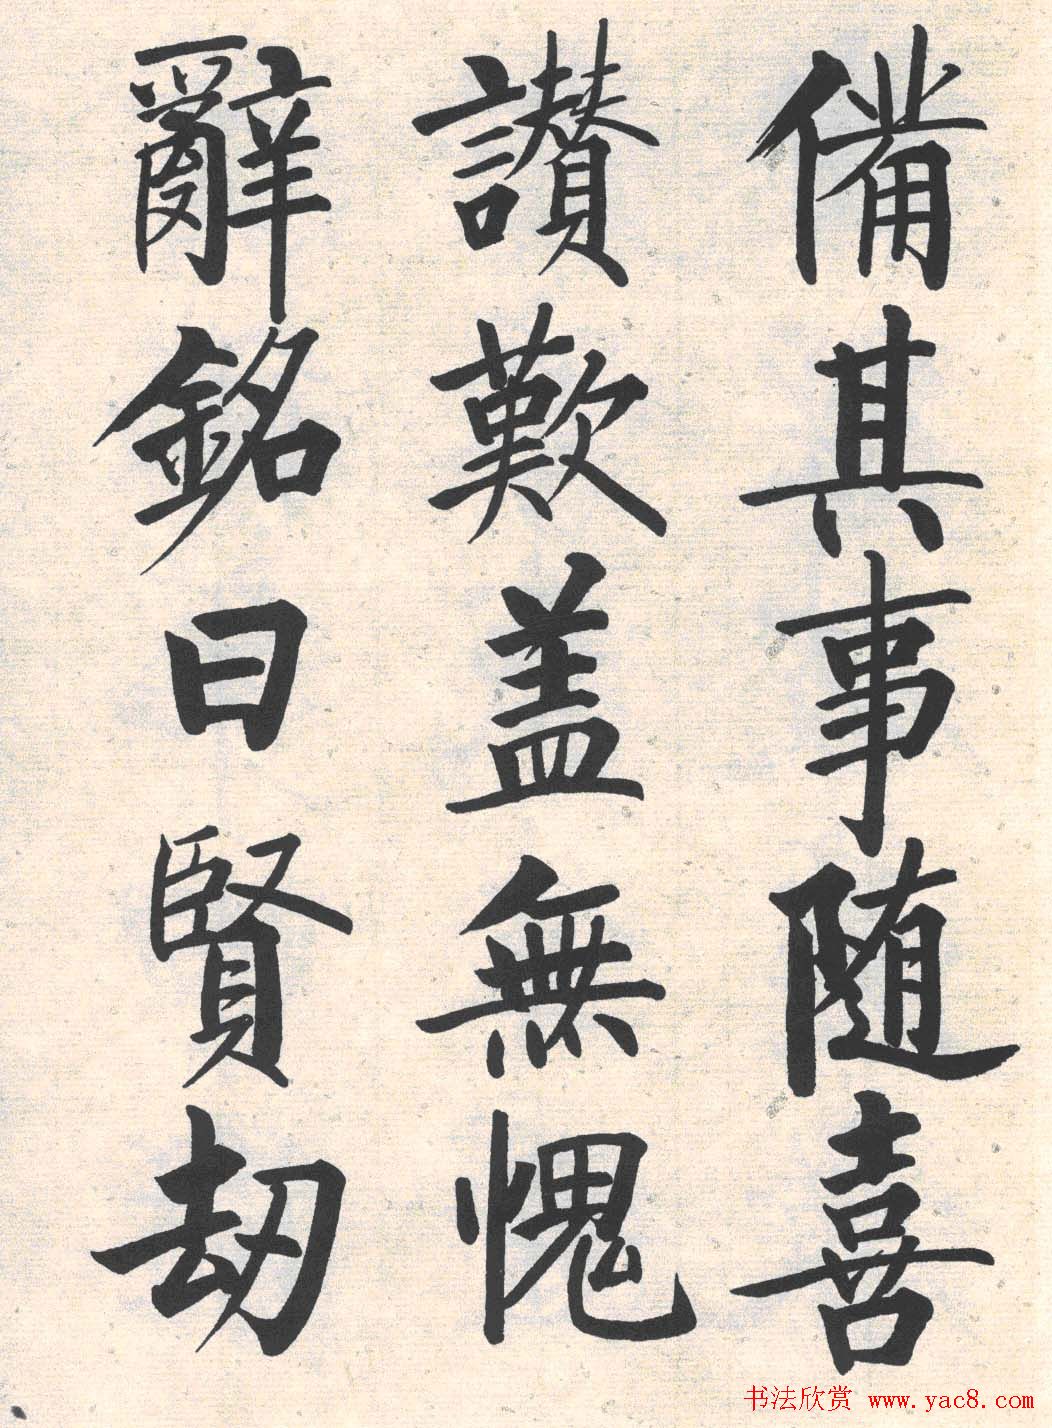 備其事随喜
讃歎盖無愧
辭銘曰賢劫
书法欣赏 www.yac8.com